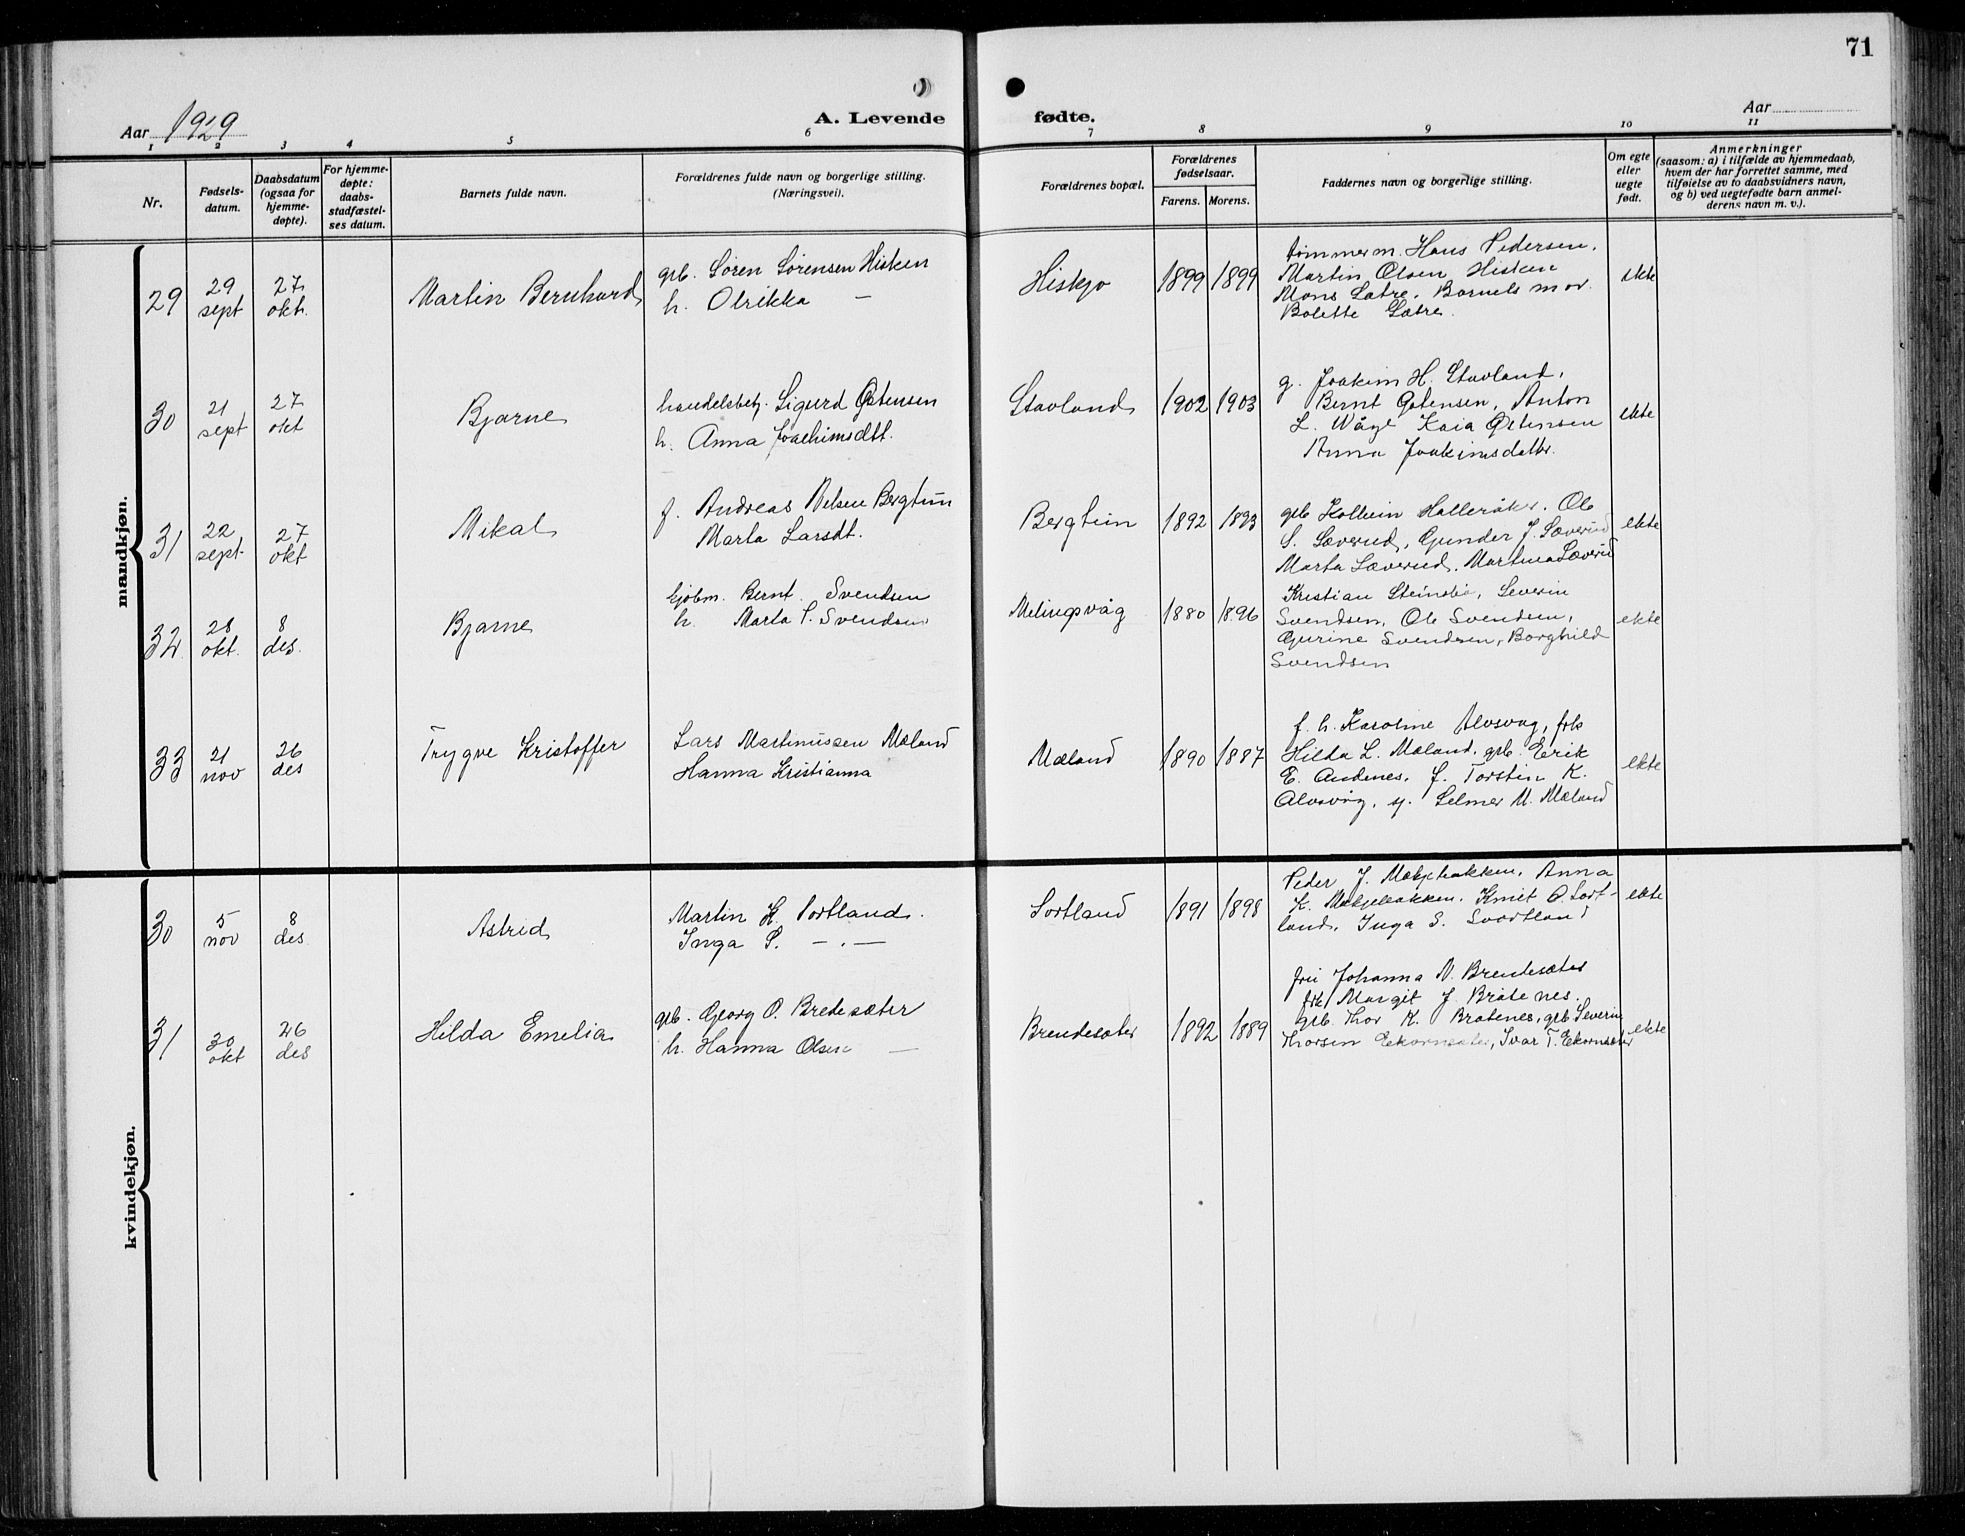 71
Aar 1929
A. Levende
fødte.
Aar
1 2 3 4 5 6 7 8 9 10 11
Nr.
Fødsels-
datum.
Daabsdatum
(ogsaa for
hjemme-
døpte).
For hjemme-
døpte:
daabs-
stadfæstel-
ses datum.
Barnets fulde navn.
Forældrenes fulde navn og borgerlige stilling.
(Næringsvei).
Forældrenes bopæl.
Forældrenes
fødselsaar.
Farens. Morens.
Faddernes navn og borgerlige stilling.
Om egte
eller
uegte
født.
Anmerkninger
(saasom: a) i tilfælde av hjemmedaab,
hvem der har forrettet samme, med
tilføielse av to daabsvidners navn,
og b) ved uegtefødte barn anmel-
derens navn m. v.).
mandkjøn.
29
29
sept
27
okt.
Martin Bernhard
grb. Søren Sørensen Hisken
h. Olrikka —
Hiskjo
1899 1899
tømmerm. Hans Pedersen.
Martin Olsen Hisken
Mons Sætre. Barnets mor.
Bolette Sætre.
ekte
30
21
sept
27
okt
Bjarne
handelsbetj. Sigurd Østensen
h. Anna Joachimsdtt.
Stavland
1902 1903
g. Joakim H. Stavland.
Bernt Østensen, Anton
L. Våge Kaia Østensen
Anna Joakimsdatter.
ekte
31
22
sept.
27
okt
Mikal
f. Andreas Nelsen Bergtun
Marta Larsdt.
Bergtun
1892 1893
grb Kolbein Halleråker. Ole
S. Sæverud, Gunder J. Sæverud
Marta Sæverud. Martina Sæverud
ekte
32
28
okt.
8
des.
Bjarne
Bernt Svendsen
h. Marta S. Svendsen
Melingsvåg
1880 1896
Kristian Steinsbø, Severin
Svendsen, Ole Svendsen,
Gurine Svendsen, Borghild
Svendsen
ekte
33
21
nov
26
des
Trygve Kristoffer
Lars Martinussen Mæland
Hanna Kristianna
Mæland
1890 1887
f. h. Karoline Alvsvåg, frk
Hilda L. Mæland, grb. Erik
E. Andenes. f. Torstin K.
Alvsvåg, Selmer M. Mæland
ekte
kvindekjøn.
30
5
nov
8
des
Astrid
Martin K. Sortland.
Inga S. — . —
Sortland
1891 1898
Peder J. Mækjebakken. Anna
K. Mækjebakken. Knut O. Sort-
land. Inga S. Svortland
ekte
31
30
okt
26
des
Hilda Emelia
grb. Georg O. Bredesæter
h. Hanna Olsen —
Brendesæter
1892 1889
fru Johanna N. Brendesæter
frk Margit J. Bråtenes.
grb. Thor K. Bråtenes, grb Severin
Thorsen Ekornsæter, Ivar T. Ekornsæter
ekte